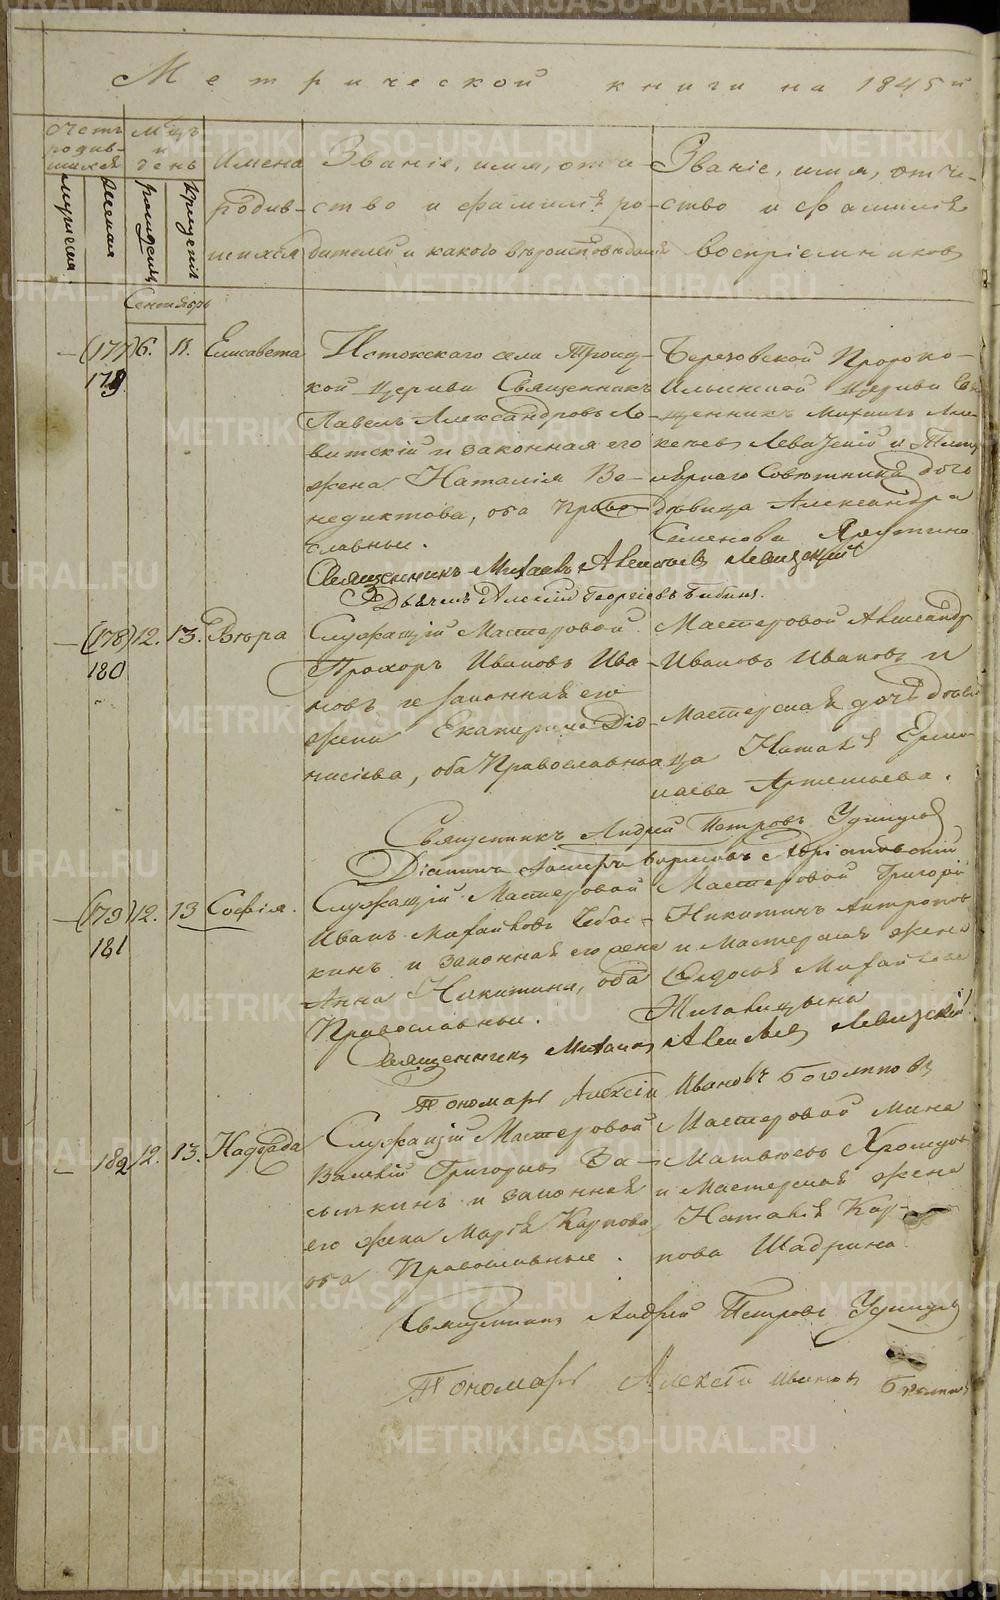 Метрической книги на 1845й
Счетъ родив-шихся
Мѣцъ и день
мужеска
женска
рожденія
крещенія
Имена родив-шихся
Званіе, имя, отче-
ство и фамилія ро-
дителей и какого вѣроисповѣданія
Званіе, имя, отче-
ство и фамилія
воспріемниковъ
Сентябрь
(177) 179 6. 11. Елисавета
Истокскаго села Троиц-
кой церкви Священникъ
Павелъ Александровъ Ле-
витскій и законная его
жена Наталія Ве-
недиктова, оба Право-
славные.
Березовской Пророко-
Ильинской церкви Свя-
щенникъ Михаилъ Але-
ксеевъ Левицкій и
Совѣтника дочь
дѣвица Александра
Семенова
Священникъ Михаилъ Алексѣевъ Левицкій
Дьячекъ Алексій Георгіевъ Бабинъ.
(178) 180 12. 13. Вѣра
Служащій Мастеровой
Прохоръ Ивановъ Ива-
новъ и законная его
жена Екатерина Діо-
нисіева, оба Православные
Мастеровой Александръ
Ивановъ Ивановъ и
Мастерская дочь дѣви-
ца Наталія Ермо-
лаева Артемьева.
Священникъ Андрей Петровъ Удинцевъ
Діаконъ
(179) 181 12. 13 Софія.
Служащій Мастеровой
Иванъ Михайловъ Чебос-
кинъ и законная его жена
Анна Никитина, оба
Православные.
Мастеровой Григорій
Никитинъ Антроповъ
и Мастерская жена
Ѳедосья Михайлова
Священникъ Михаилъ Алексѣевъ Левицкій
Пономарь Алексій Ивановъ Боголѣповъ
182 12. 13. Надежда
Служащій Мастеровой
Василій Григорьевъ Ва-
сылкинъ и законная
его жена Марія Карпова,
оба Православные.
Мастеровой Мина
Матвѣевъ
и Мастерская жена
Наталія Кар-
пова Шадрина
Священникъ Андрей Петровъ Удинцевъ
Пономарь Алексій Ивановъ Боголѣповъ
METRIKI.GASO-URAL.RU